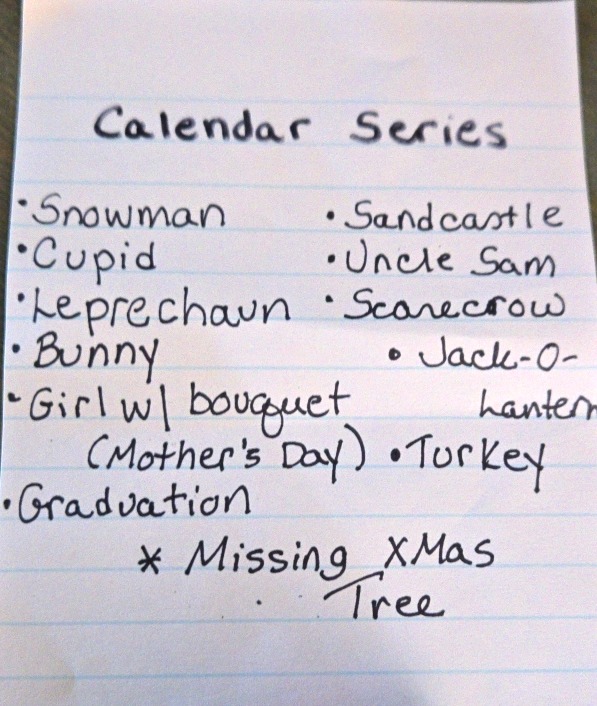 Calendar Series
• Snowman
• Cupid
• Leprechaun
• Bunny
- Girl w/ bouquet
(Mother's Day)
• Graduation
• Sandcastle
• Uncle Sam
• Scarecrow
• Jack-O-
Lantern
• Turkey
* Missing XMas
Tree